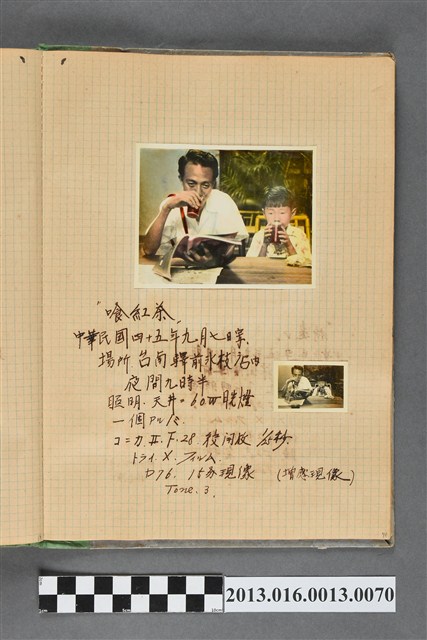 "喰紅茶"
中華民國四十五年九月七日字.
場所 台南驛前氷枝店内
夜間九時半
照明. 天井. 60W 朕燈
一個
コニカ.Ⅱ. F.28
トライ.X. フィルム.
D76. 15分現像 (増感現像)
Tone. 3.
2013.016.0013.0070